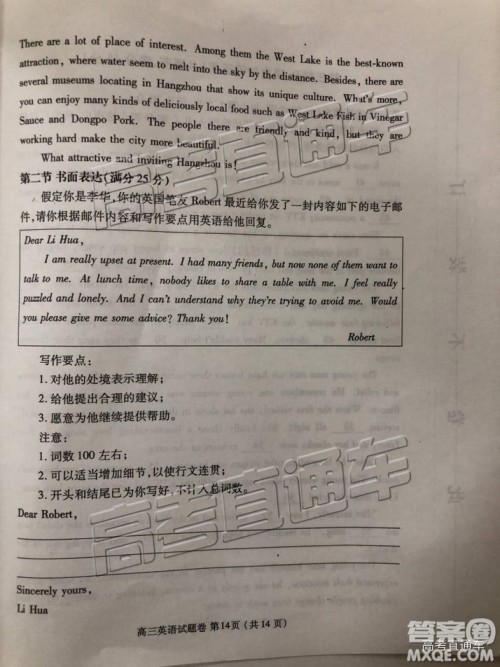 There are a lot of place of interest. Among them the West Lake is the best-known
attraction, where water seem to melt into the sky by the distance. Besides, there are
several museums locating in Hangzhou that show its unique culture. What's more,
you can enjoy many kinds of deliciously local food such as West Lake Fish in Vinegar
Sauce and Dongpo Pork. The people there are friendly and kind, but they are
working hard make the city more beautiful.
What attractive and inviting Hangzhou is!
第二节 书面表达(满分25分)
假定你是李华,你的英国笔友Robert最近给你发了一封内容如下的电子邮
件,请你根据邮件内容和写作要点用英语给他回复。
Dear Li Hua,
I am really upset at present. I had many friends, but now none of them want to
talk to me. At lunch time, nobody likes to share a table with me. I feel really
puzzled and lonely. And I can't understand why they're trying to avoid me. Would
you please give me some advice? Thank you!
Robert
写作要点:
1. 对他的处境表示理解;
2. 给他提出合理的建议;
3. 愿意为他继续提供帮助。
注意:
1. 词数100左右;
2. 可以适当增加细节,以使行文连贯;
3. 开头和结尾已为你写好,不计入总词数。
Dear Robert,
Sincerely yours,
Li Hua
高三英语试题卷 第14页(共14页)
高考直通车
高考直通车
高考直通车
高考直通车
答案圈
MXQE.COM